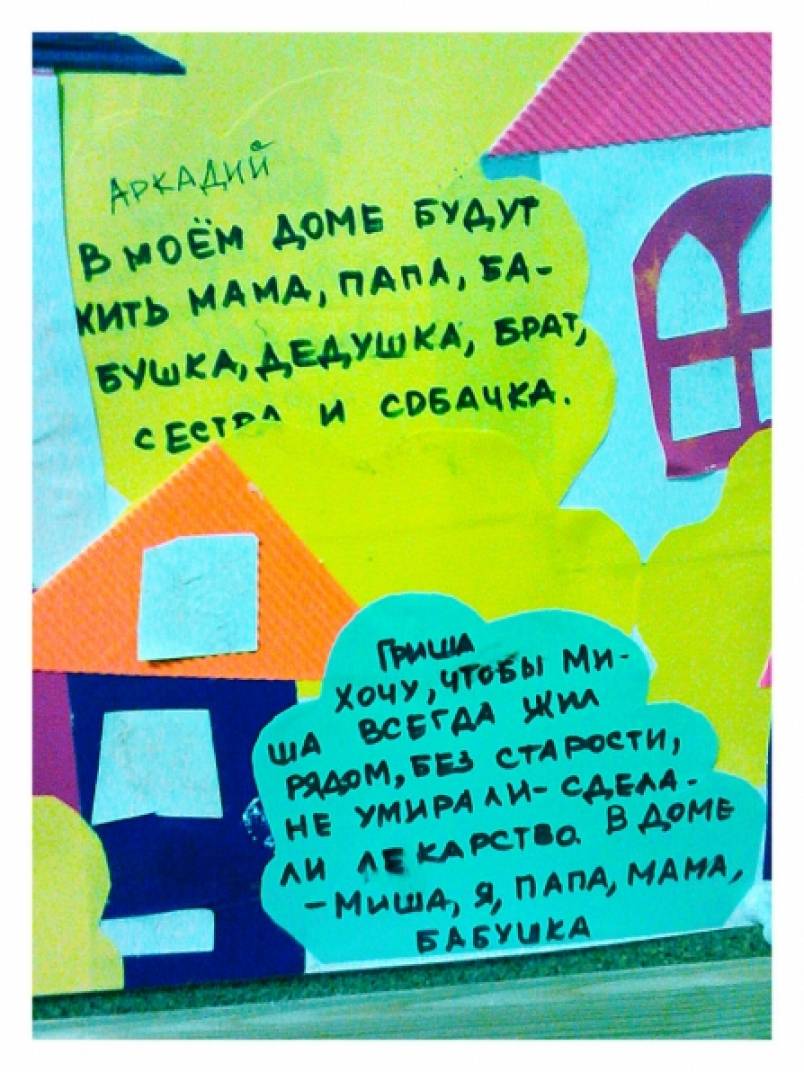 АРКАДИЙ
В МОЁМ ДОМЕ БУДУТ
ЖИТЬ МАМА, ПАПА, БА-
БУШКА, ДЕДУШКА, БРАТ,
СЕСТРА И СОБАЧКА.
ГРИША
ХОЧУ, ЧТОБЫ МИ-
ША ВСЕГДА ЖИЛ
РЯДОМ, БЕЗ СТАРОСТИ,
НЕ УМИРАЛИ-СДЕЛА-
ЛИ ЛЕКАРСТВО. В ДОМЕ
-МИША, Я, ПАПА, МАМА,
БАБУШКА